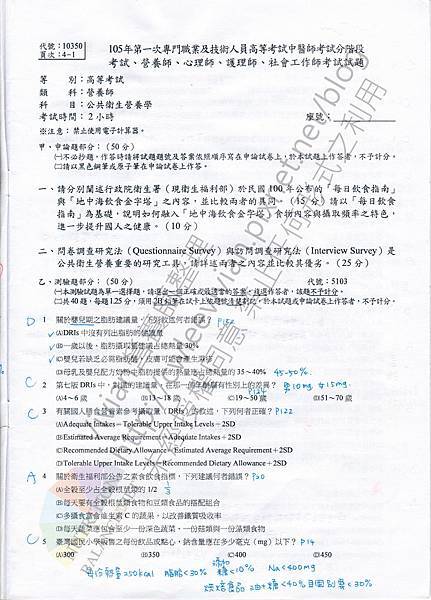 代號：10350
頁次：4－1
105年第一次專門職業及技術人員高等考試中醫師考試分階段
考試、營養師、心理師、護理師、社會工作師考試試題
等　　別：高等考試
類　　科：營養師
科　　目：公共衛生營養學
考試時間：2小時　座號：
※注意：禁止使用電子計算器。
甲、申論題部分：（50分）
㈠不必抄題，作答時請將試題題號及答案依照順序寫在申論試卷上，於本試題上作答者，不予計分。
㈡請以黑色鋼筆或原子筆在申論試卷上作答。
一、請分別闡述行政院衛生署（現衛生福利部）於民國100年公布的「每日飲食指南」
與「地中海飲食金字塔」之內容，並比較兩者的異同。（15分）請以「每日飲食
指南」為基礎，說明如何融入「地中海飲食金字塔」食物內容與攝取頻率之特色，
進一步提升國人之健康。（10分）
二、問卷調查研究法（Questionnaire Survey）與訪問調查研究法（Interview Survey）是
公共衛生營養重要的研究工具，請詳述兩者之內容並比較其優劣。（25分）
乙、測驗部分：（50分）　代號：5103
㈠本測驗試題為單一選擇題，請選出一個正確或最適當的答案，複選作答者，該題不予計分。
㈡共40題，每題1.25分，須用2B鉛筆在試卡上依題號清楚劃記，於本試題或申論試卷上作答者，不予計分。
D 1 關於嬰兒期之脂肪建議量，下列敘述何者錯誤？
(A)DRIs中沒有列出脂肪的建議量
(B)一歲以後，脂肪攝取量建議占總熱量30%
(C)嬰兒若缺乏必需脂肪酸，皮膚可能會產生病徵
(D)母乳及嬰兒配方奶粉中脂肪提供的熱量應占總熱量的35～40% 45-50%
C 2 第七版DRIs中，對鐵的建議量，在那一個年齡層有性別上的差異？ 男10mg 女15mg
(A)4～6歲 (B)13～18歲 (C)19～50歲 (D)51～70歲
C 3 有關國人膳食營養素參考攝取量（DRIs）的敘述，下列何者正確？ P122
(A)Adequate Intakes＝Tolerable Upper Intake Levels＋2SD
(B)Estimated Average Requirement＝Adequate Intakes＋2SD
(C)Recommended Dietary Allowance＝Estimated Average Requirement＋2SD
(D)Tolerable Upper Intake Levels＝Recommended Dietary Allowance＋2SD
A 4 關於衛生福利部公告之素食飲食指標，下列建議何者錯誤？ P20
(A)全穀至少占全穀根莖類的1/2 1/3
(B)每天要有全穀根莖類食物和豆類食品的搭配組合
(C)多攝食富含維生素C的蔬果，以改善鐵質吸收率
(D)每天蔬菜應包含至少一份深色蔬菜、一份菇類與一份藻類食物
C 5 臺灣國民小學販售之每份飲品或點心，鈉含量應在多少毫克（mg）以下？ P14
(A)300 (B)350 (C)400 (D)450
每份熱量250kcal 脂肪<30% 添加糖<10% Na<400mg
烘焙食品 油+糖<40% 且個別要<30%